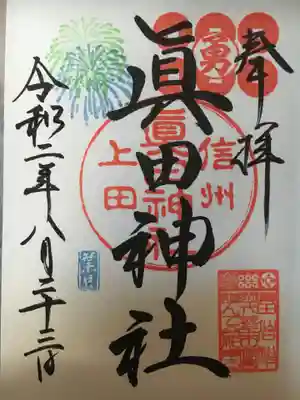 奉拝
勇
眞田神社
信州
眞田神社
上田
令和二年八月二十三日
葉月